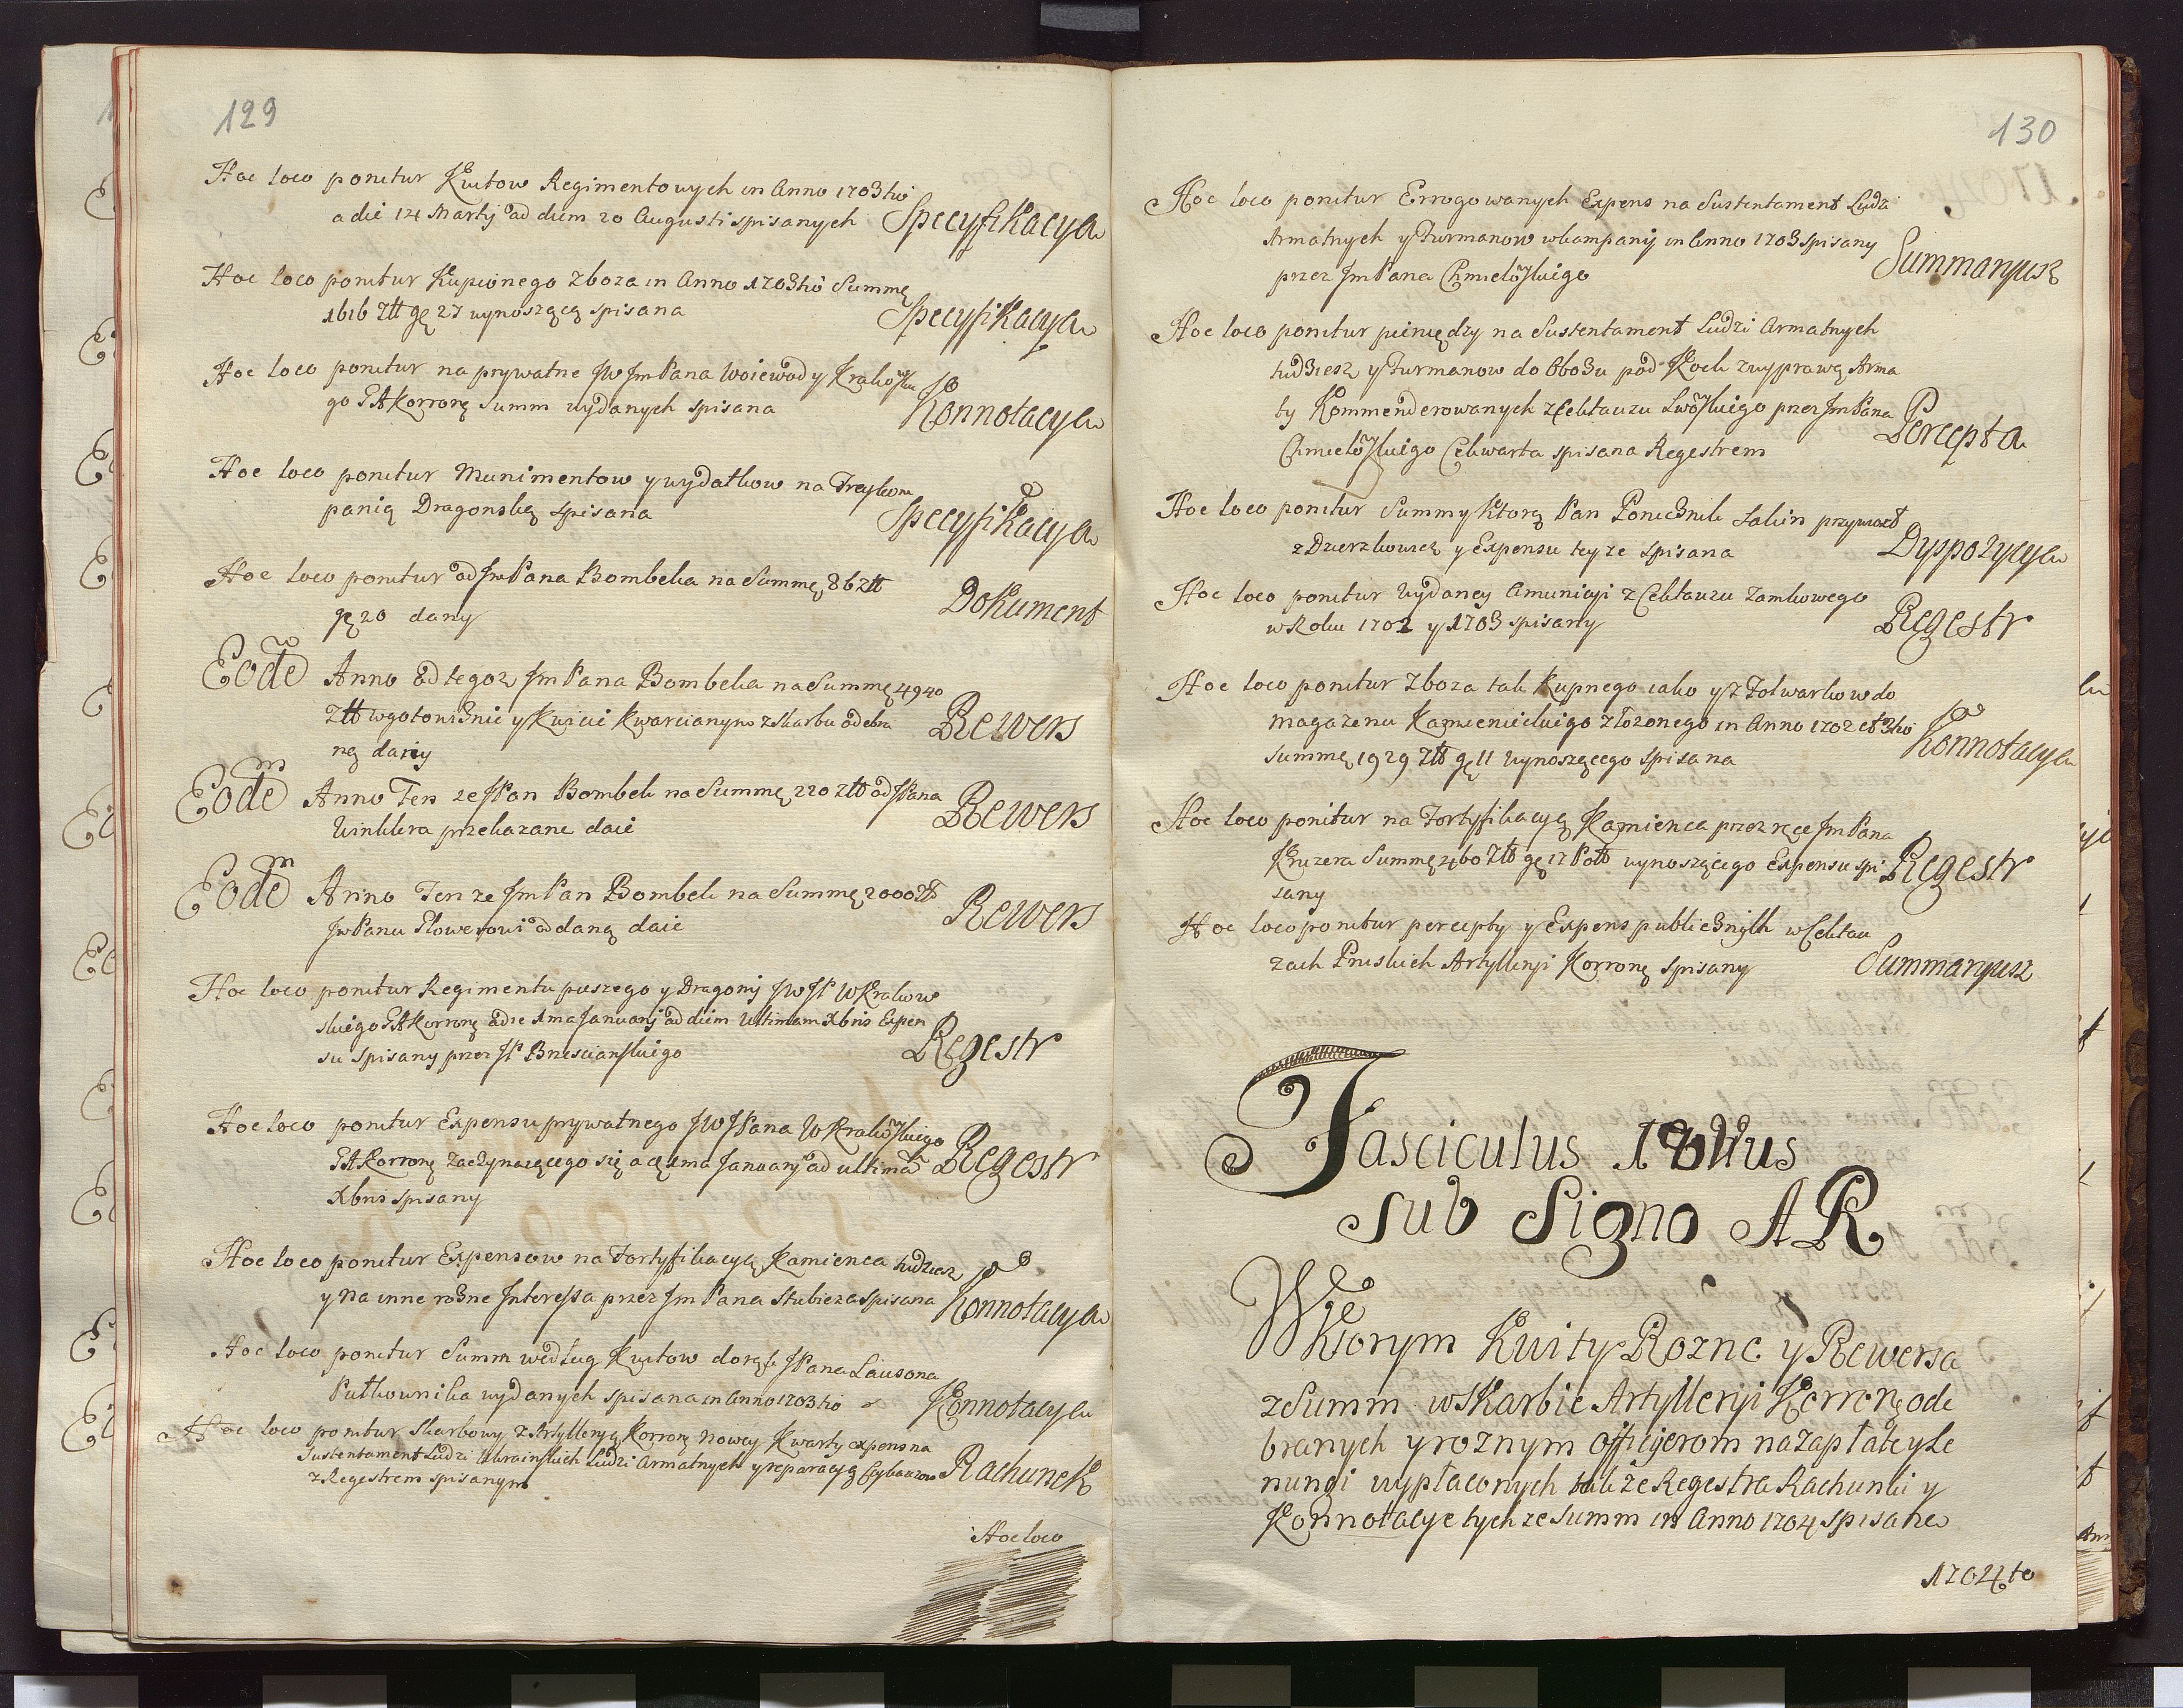 129
Hoc loco ponitur Kwitow Regimentowych in Anno 1703tio
a die 14 Martij ad diem 20 Augusti spisanych Specyfikacya
Hoc loco ponitur Kupionego zboza in Anno 1703tio Summę
1616 Złł gę 27 wynoszącą spisana Specyfikacya
Hoc loco ponitur na prywatne JW JmPana Woiewody Krakowsku
go GAKorronę Summ wydanych spisana Konnotacya
Hoc loco ponitur Munimentow y wydatkow na Treykom
panią Dragonską spisana Specyfikacya
Hoc loco ponitur od JmPana Bombeka na Summę 86 złł
gę 20 dany Dokument
Eodē Anno Od tegoz JmPana Bombeka na Summę 4940
Złł w gotowiznie y Kwicie Kwarcianym z Skarbu odebra
ną dany Rewers
Eodem Anno Ten ze JPan Bombek na Summę 220 złł od JPana
Winklera przekazane daie Rewers
Eodem Anno Ten ze JmPan Bombek na Summę 2000 zł
JmPanu Flowerowi oddaną daie Rewers
Hoc loco ponitur Regimentu pieszego y Dragonij JWJP WKrakow
skiego GAKorronę a die 1ma Januarij ad diem Ultimam Xbris Expen
su spisany przez JP Brzescianskiego Regestr
Hoc loco ponitur Expensu prywatnego JWJPana WKrakowskiego
GAKorronę Zaczynaiącego się a 1ma Januarij ad ultimā
Xbris spisany Regestr
Hoc loco ponitur Expensow na Fortyfikacyą Kamienca tudziesz
y na inne rozne Interessa przez JmPana Skubicza spisana Konnotacya
Hoc loco ponitur Summ według Kwitow do rąk JPana Lausona
Pułkownika wydanych spisana in Anno 1703tio Konnotacya
Hoc loco ponitur Skarbowy z Artylleryą Korronę nowey Kwarty expens na
Sustentament Ludzi Ukrainskich Ludzi Armatnych y reparacyą Cekauzow
z Regestrem spisanym Rachunek
Hoc loco
130
Hoc loco ponitur Errogowanych Expens na Sustentament Ludzi
Armatnych y Furmanow w kampanij in Anno 1703 spisany
przez JmPana Chmielowskiego Summaryusz
Hoc loco ponitur pieniędzy na Sustentament Ludzi Armatnych
tudziesz y Furmanow do Obozu pod Kock z wyprawą Arma
ty Kommenderowanych z Cekauzu Lwowskiego przez JmPana
Chmielowskiego Cekwarta spisana Regestrem Percepta
Hoc loco ponitur Summy Ktorą Pan Porucznik Lakin przywiozł
z Dzierzkowicz y Expensu teyze spisana Dyspozycya
Hoc loco ponitur Wydaney Amunicyi z Cekhauzu Zamkowego
w Roku 1702 y 1703 spisany Regestr
Hoc loco ponitur Zboza tak kupnego iako y z Folwarkow do
magazenu Kamienieckiego złozonego in Anno 1702 et 3tio
Summę 1929 Złł gę 11 wynoszącego spisana Konnotacya
Hoc loco ponitur na Fortyfikacyą Kamienca przez ręce JmPana
Kruzera Summę 460 Złł gę 17 Połł wynoszącego Expensu spi
sany Regestr
Hoc loco ponitur percepty y Expens publicznych w Cekhau
zach Pruskich Artylleryi Korronę spisany Summaryusz
Fasciculus 18vus
sub Signo AR
W
Ktorym Kwity Rozne y Rewersa
z Summ w Skarbie Artylleryi Korronę ode
branych y roznym Officyerom na zapłatę y Le
nungi wypłaconych takze Regestra Rachunki y
Konnotacye tych ze Summ in Anno 1704 spisane
1704to